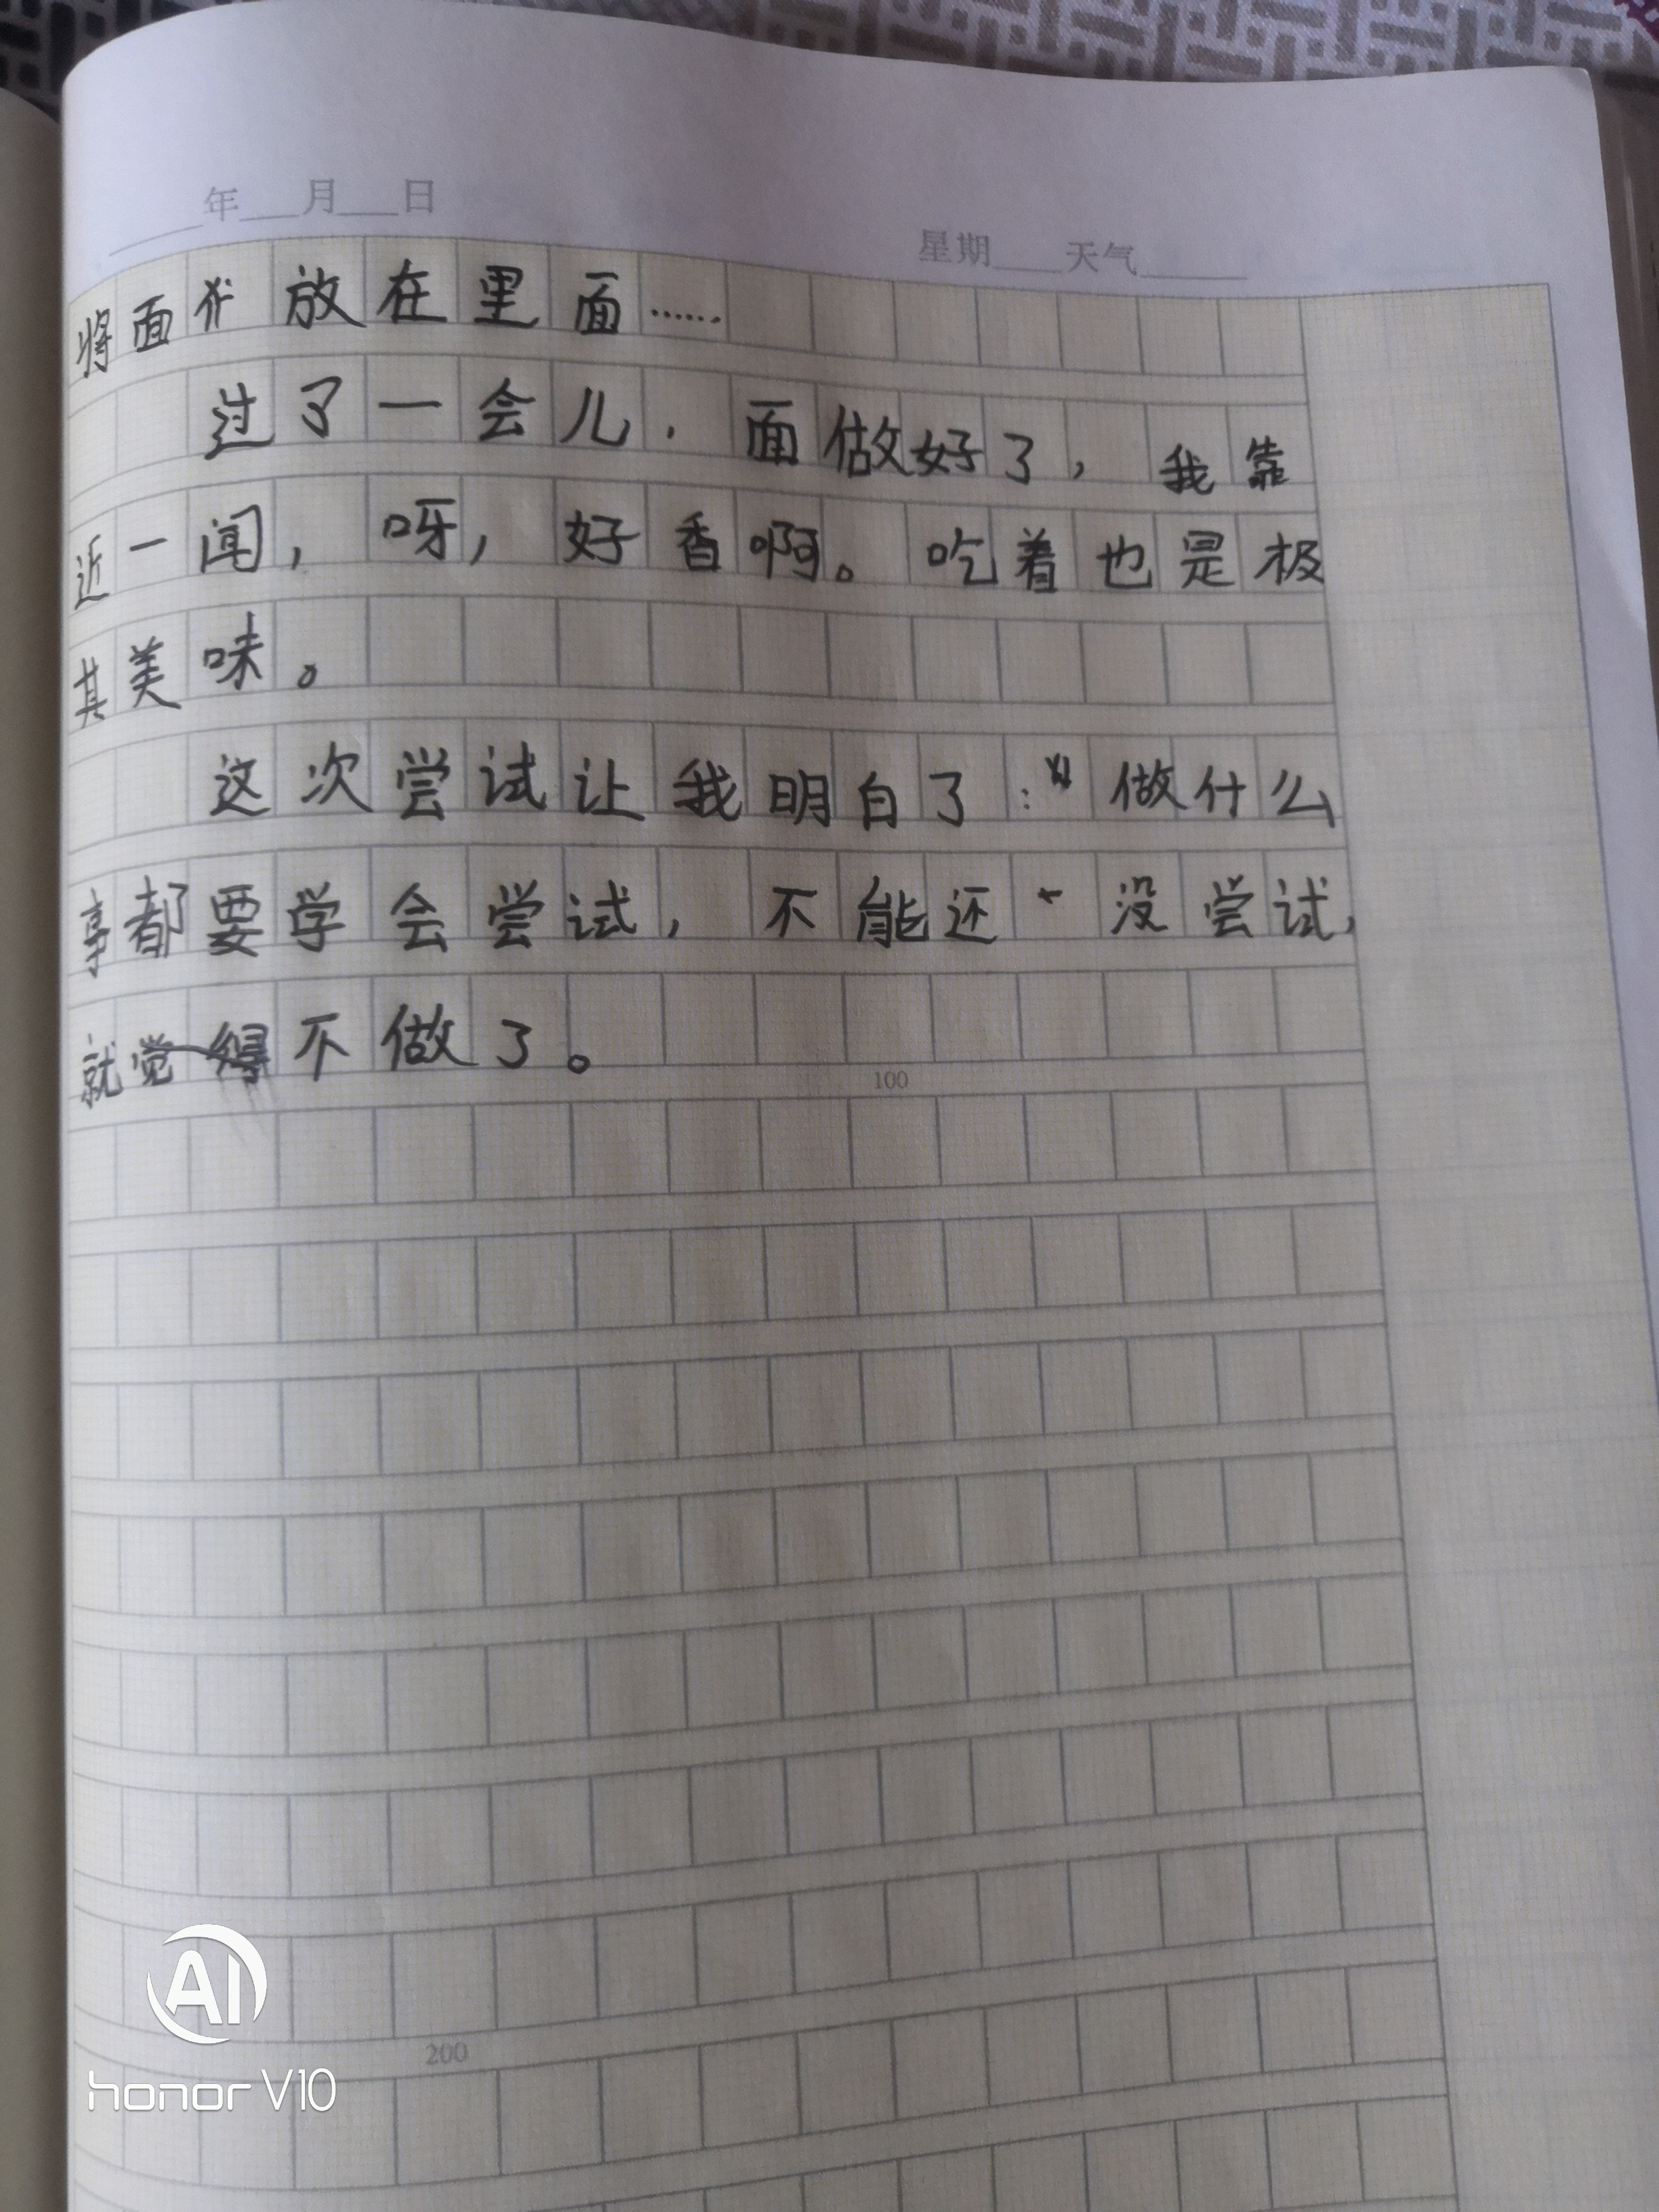 年___月___日
星期___天气___
将面 放在里面……
过了一会儿，面做好了，我靠
近一闻，呀，好香啊。吃着也是极
其美味。
这次尝试让我明白了：做什么
事都要学会尝试，不能还没尝试，
就觉得不做了。
100
200
AI
honor V10